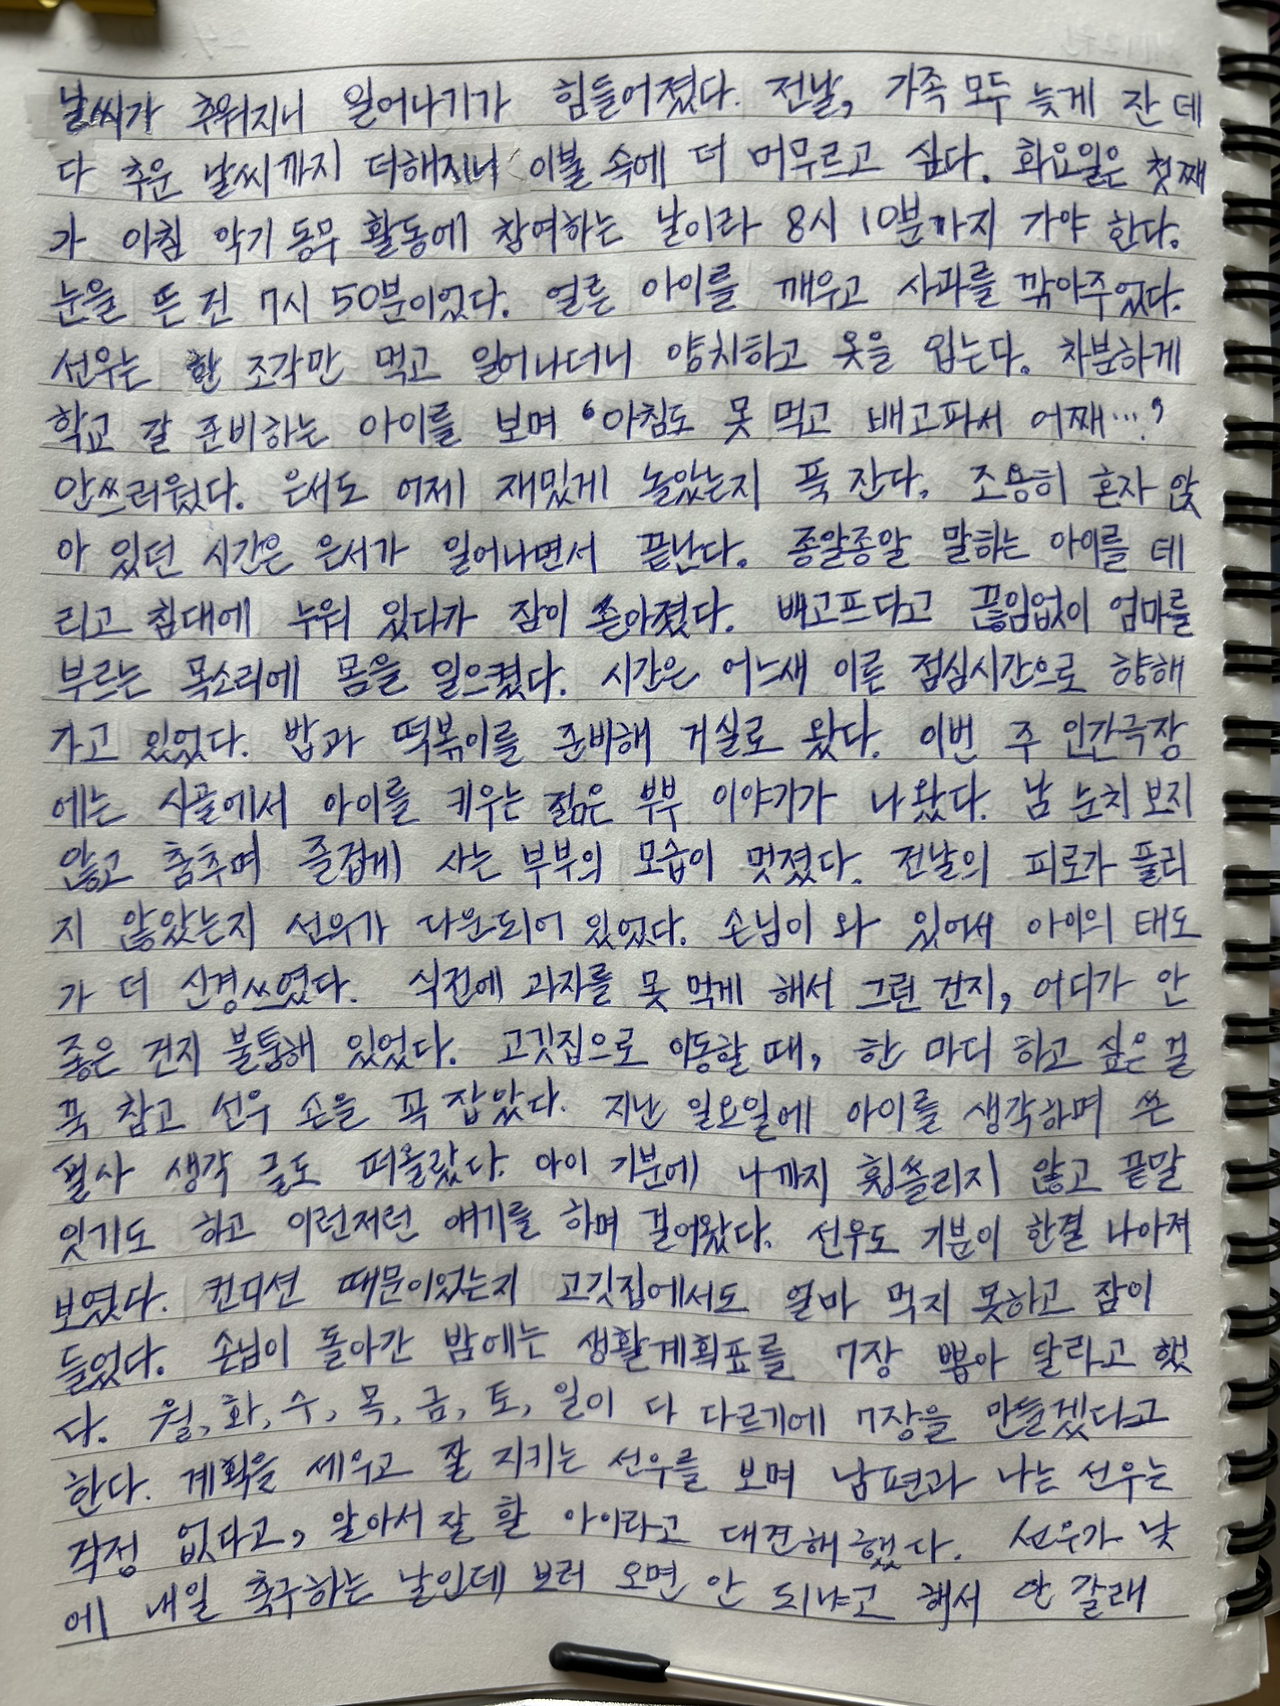 날씨가 추워지니 일어나기가 힘들어졌다. 전날, 가족 모두 늦게 잔 데
다 추운 날씨까지 더해지니 이불 속에 더 머무르고 싶다. 화요일은 첫째
가 아침 악기 동무 활동에 참여하는 날이라 8시 10분까지 가야 한다.
눈을 뜬 건 7시 50분이었다. 얼른 아이를 깨우고 사과를 깎아주었다.
선우는 한 조각만 먹고 일어나더니 양치하고 옷을 입는다. 차분하게
학교 갈 준비하는 아이를 보며 '아침도 못 먹고 배고파서 어째…'
안쓰러웠다. 은서도 어제 재밌게 놀았는지 푹 잔다. 조용히 혼자 앉
아 있던 시간은 은서가 일어나면서 끝난다. 종알종알 말하는 아이를 데
리고 침대에 누워 있다가 잠이 쏟아졌다. 배고프다고 끊임없이 엄마를
부르는 목소리에 몸을 일으켰다. 시간은 어느새 이른 점심시간으로 향해
가고 있었다. 밥과 떡볶이를 준비해 거실로 왔다. 이번 주 인간극장
에는 시골에서 아이를 키우는 젊은 부부 이야기가 나왔다. 남 눈치 보지
않고 춤추며 즐겁게 사는 부부의 모습이 멋졌다. 전날의 피로가 풀리
지 않았는지 선우가 다운되어 있었다. 손님이 와 있어서 아이의 태도
가 더 신경쓰였다. 식전에 과자를 못 먹게 해서 그런 건지, 어디가 안
좋은 건지 불퉁해 있었다. 고깃집으로 이동할 때, 한 마디 하고 싶은 걸
꾹 참고 선우 손을 꼭 잡았다. 지난 일요일에 아이를 생각하며 쓴
필사 생각 글도 떠올랐다. 아이 기분에 나까지 휩쓸리지 않고 끝말
잇기도 하고 이런저런 얘기를 하며 걸어왔다. 선우도 기분이 한결 나아져
보였다. 컨디션 때문이었는지 고깃집에서도 얼마 먹지 못하고 잠이
들었다. 손님이 돌아간 밤에는 생활계획표를 7장 뽑아 달라고 했
다. 월, 화, 수, 목, 금, 토, 일이 다 다르기에 7장을 만들겠다고
한다. 계획을 세우고 잘 지키는 선우를 보며 남편과 나는 선우는
걱정 없다고, 알아서 잘 할 아이라고 대견해 했다. 선우가 낮
에 내일 축구하는 날인데 보러 오면 안 되냐고 해서 안 갈래